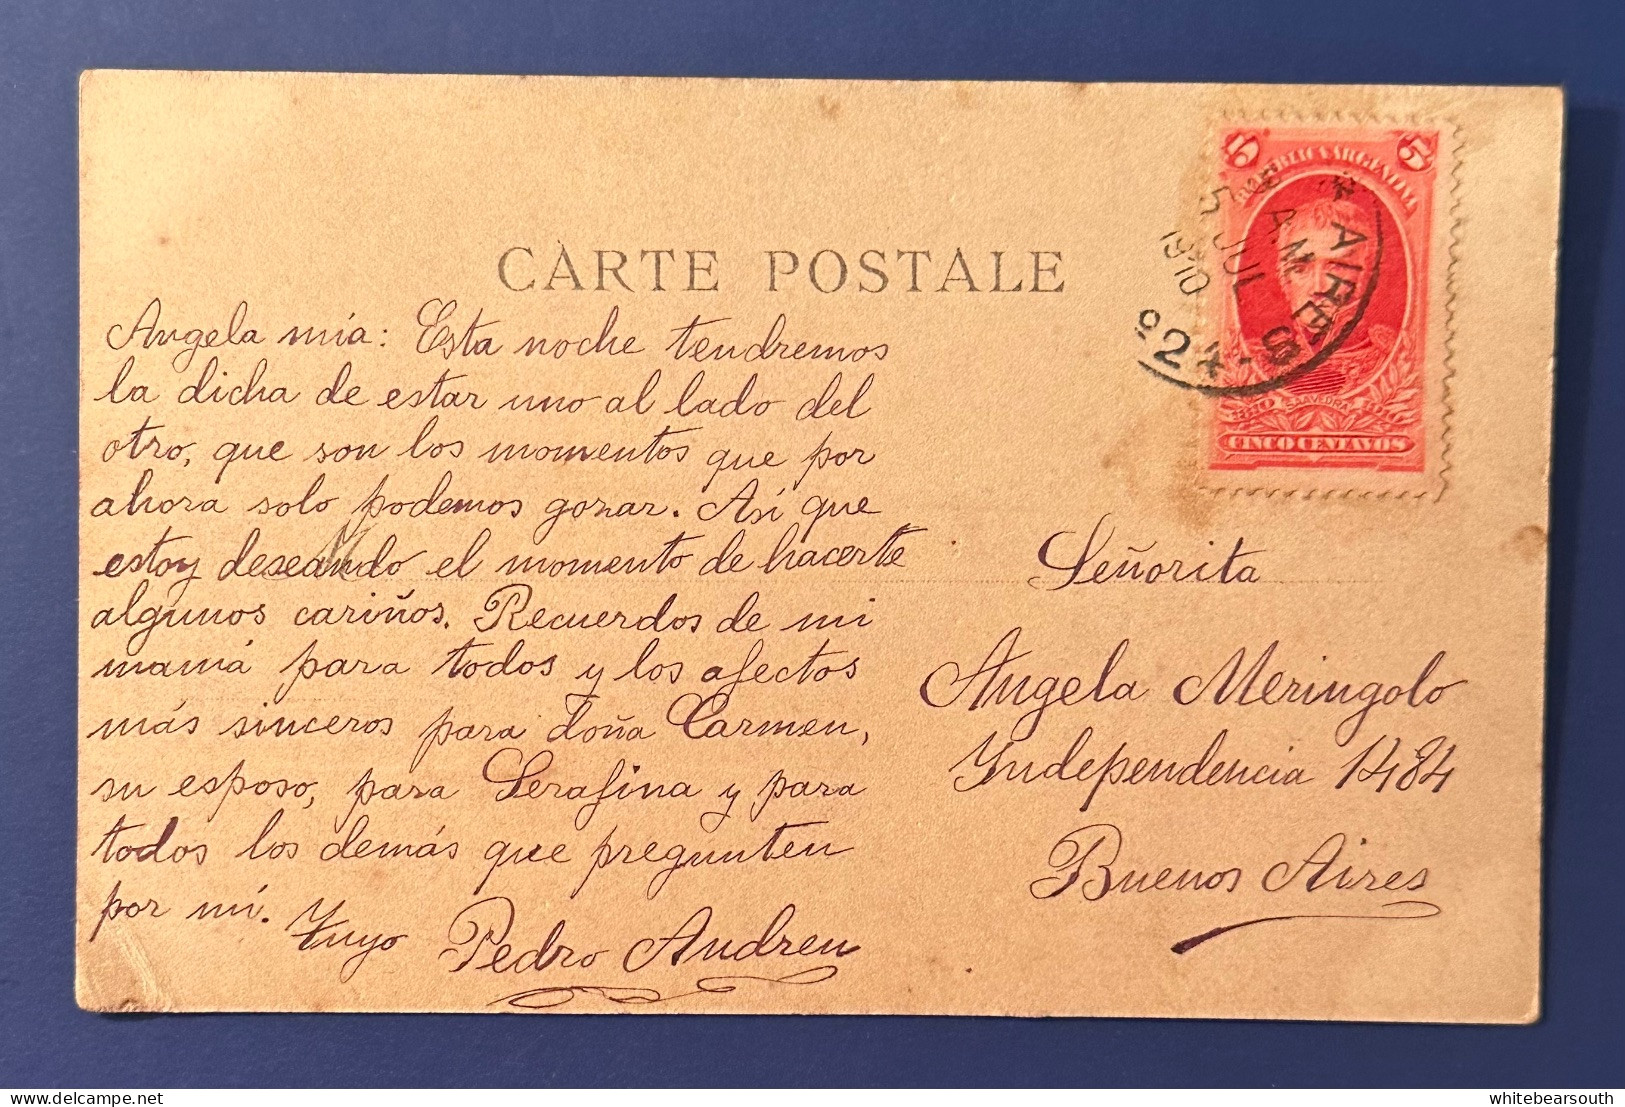 CARTE POSTALE
Angela mía: Esta noche tendremos
la dicha de estar uno al lado del
otro, que son los momentos que por
ahora solo podemos gozar. Así que
estoy deseando el momento de hacerte
algunos cariños. Recuerdos de mi
mamá para todos y los afectos
más sinceros para doña Carmen,
su esposo, para Serafina y para
todos los demás que pregunten
por mí. Tuyo Pedro Andreu
5 5
REPUBLICA ARGENTINA
1810 SAAVEDRA 1910
CINCO CENTAVOS
A.M.
5 JUL
1910
AIRES
2
Señorita
Angela Meringolo
Independencia 1484
Buenos Aires
whitebearsouth